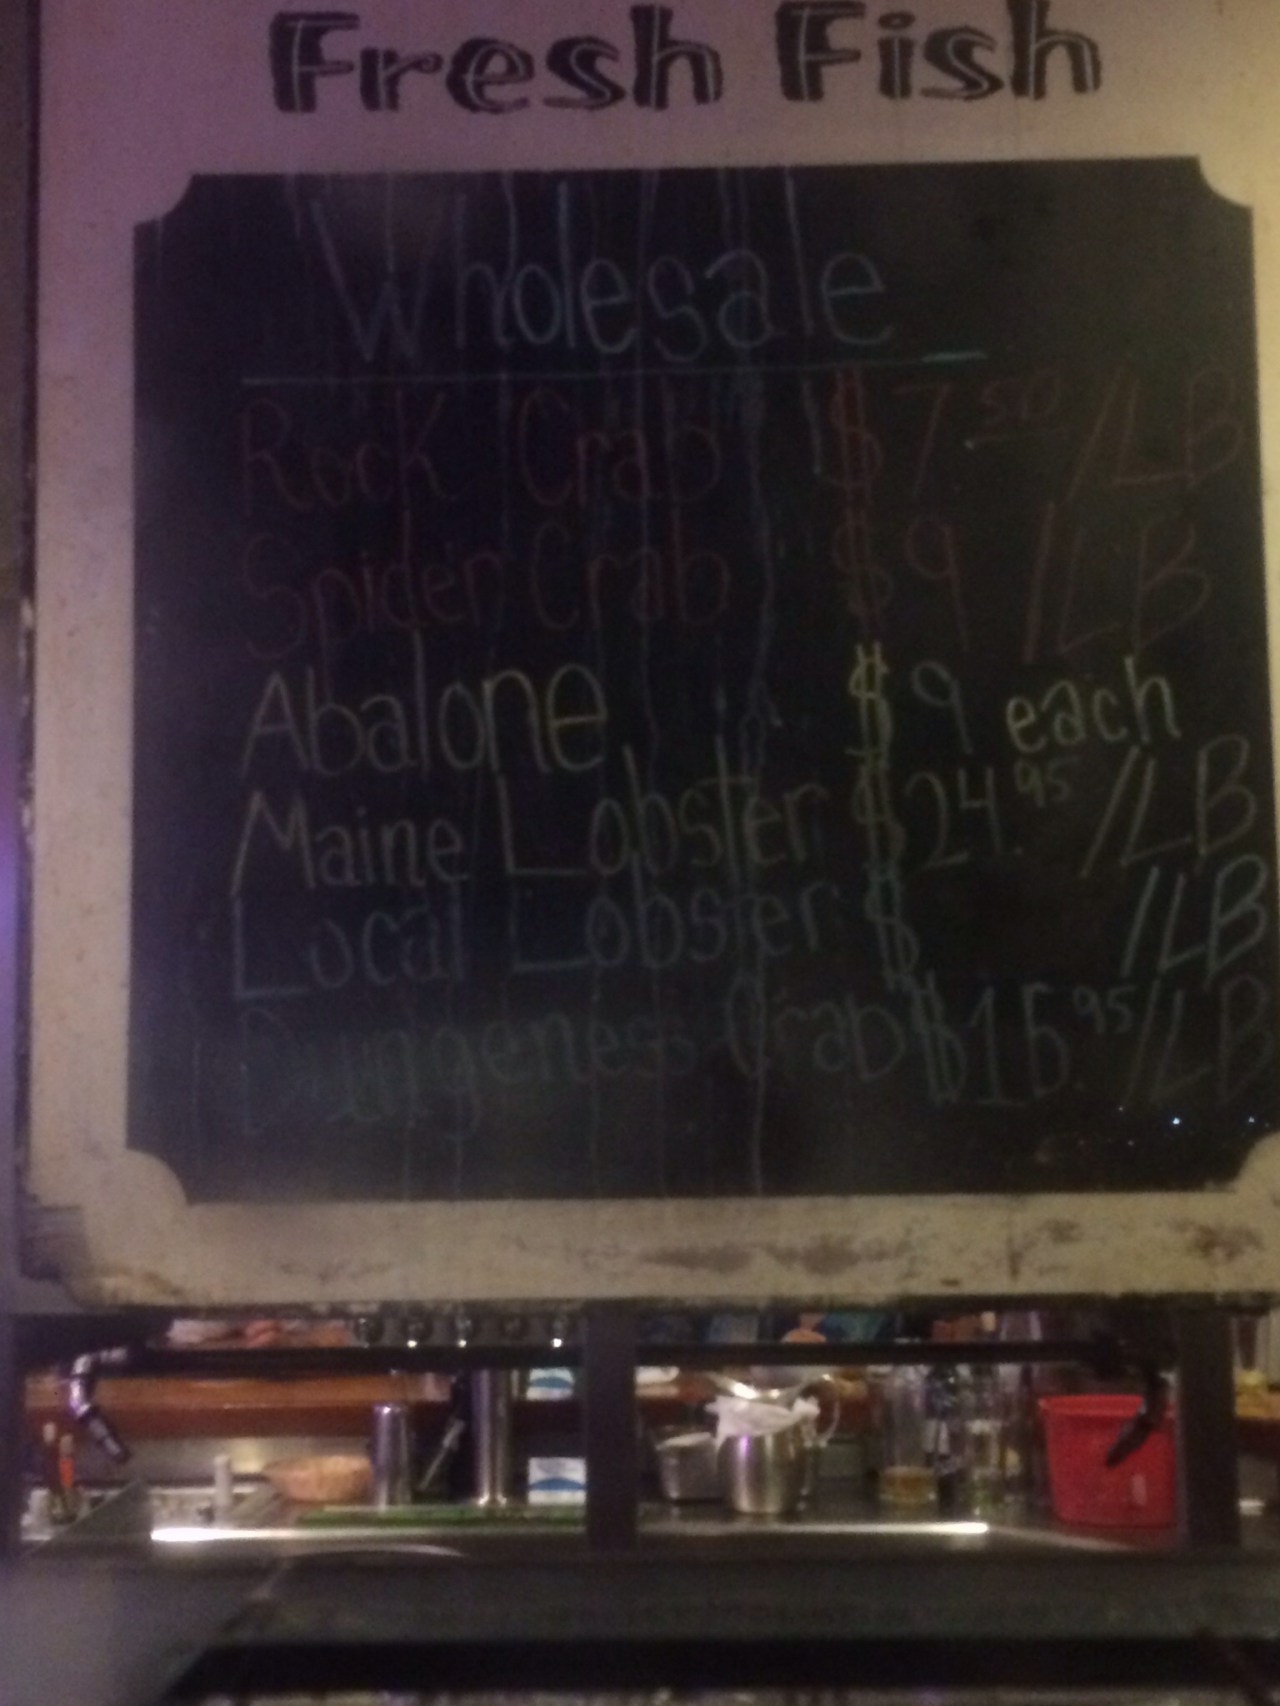 Fresh Fish
Wholesale
Rock Crab $7.50/LB
Spider Crab $9/LB
Abalone $9 each
Maine Lobster $24.95/LB
Local Lobster $ /LB
Dungeness Crab $15.95/LB